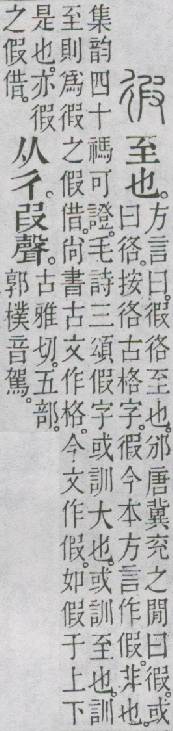 徦 至也。方言曰。徦𢓜至也。邠唐冀兖之閒曰徦。或
曰𢓜。按𢓜古格字。徦今本方言作假。非也。
集韵四十禡可證。毛詩三頌假字或訓大也。或訓至也。訓
至則爲徦之假借。尙書古文作格。今文作假。如假于上下
是也。亦徦
之假借。
从彳。叚聲。古雅切。五部。
郭樸音駕。